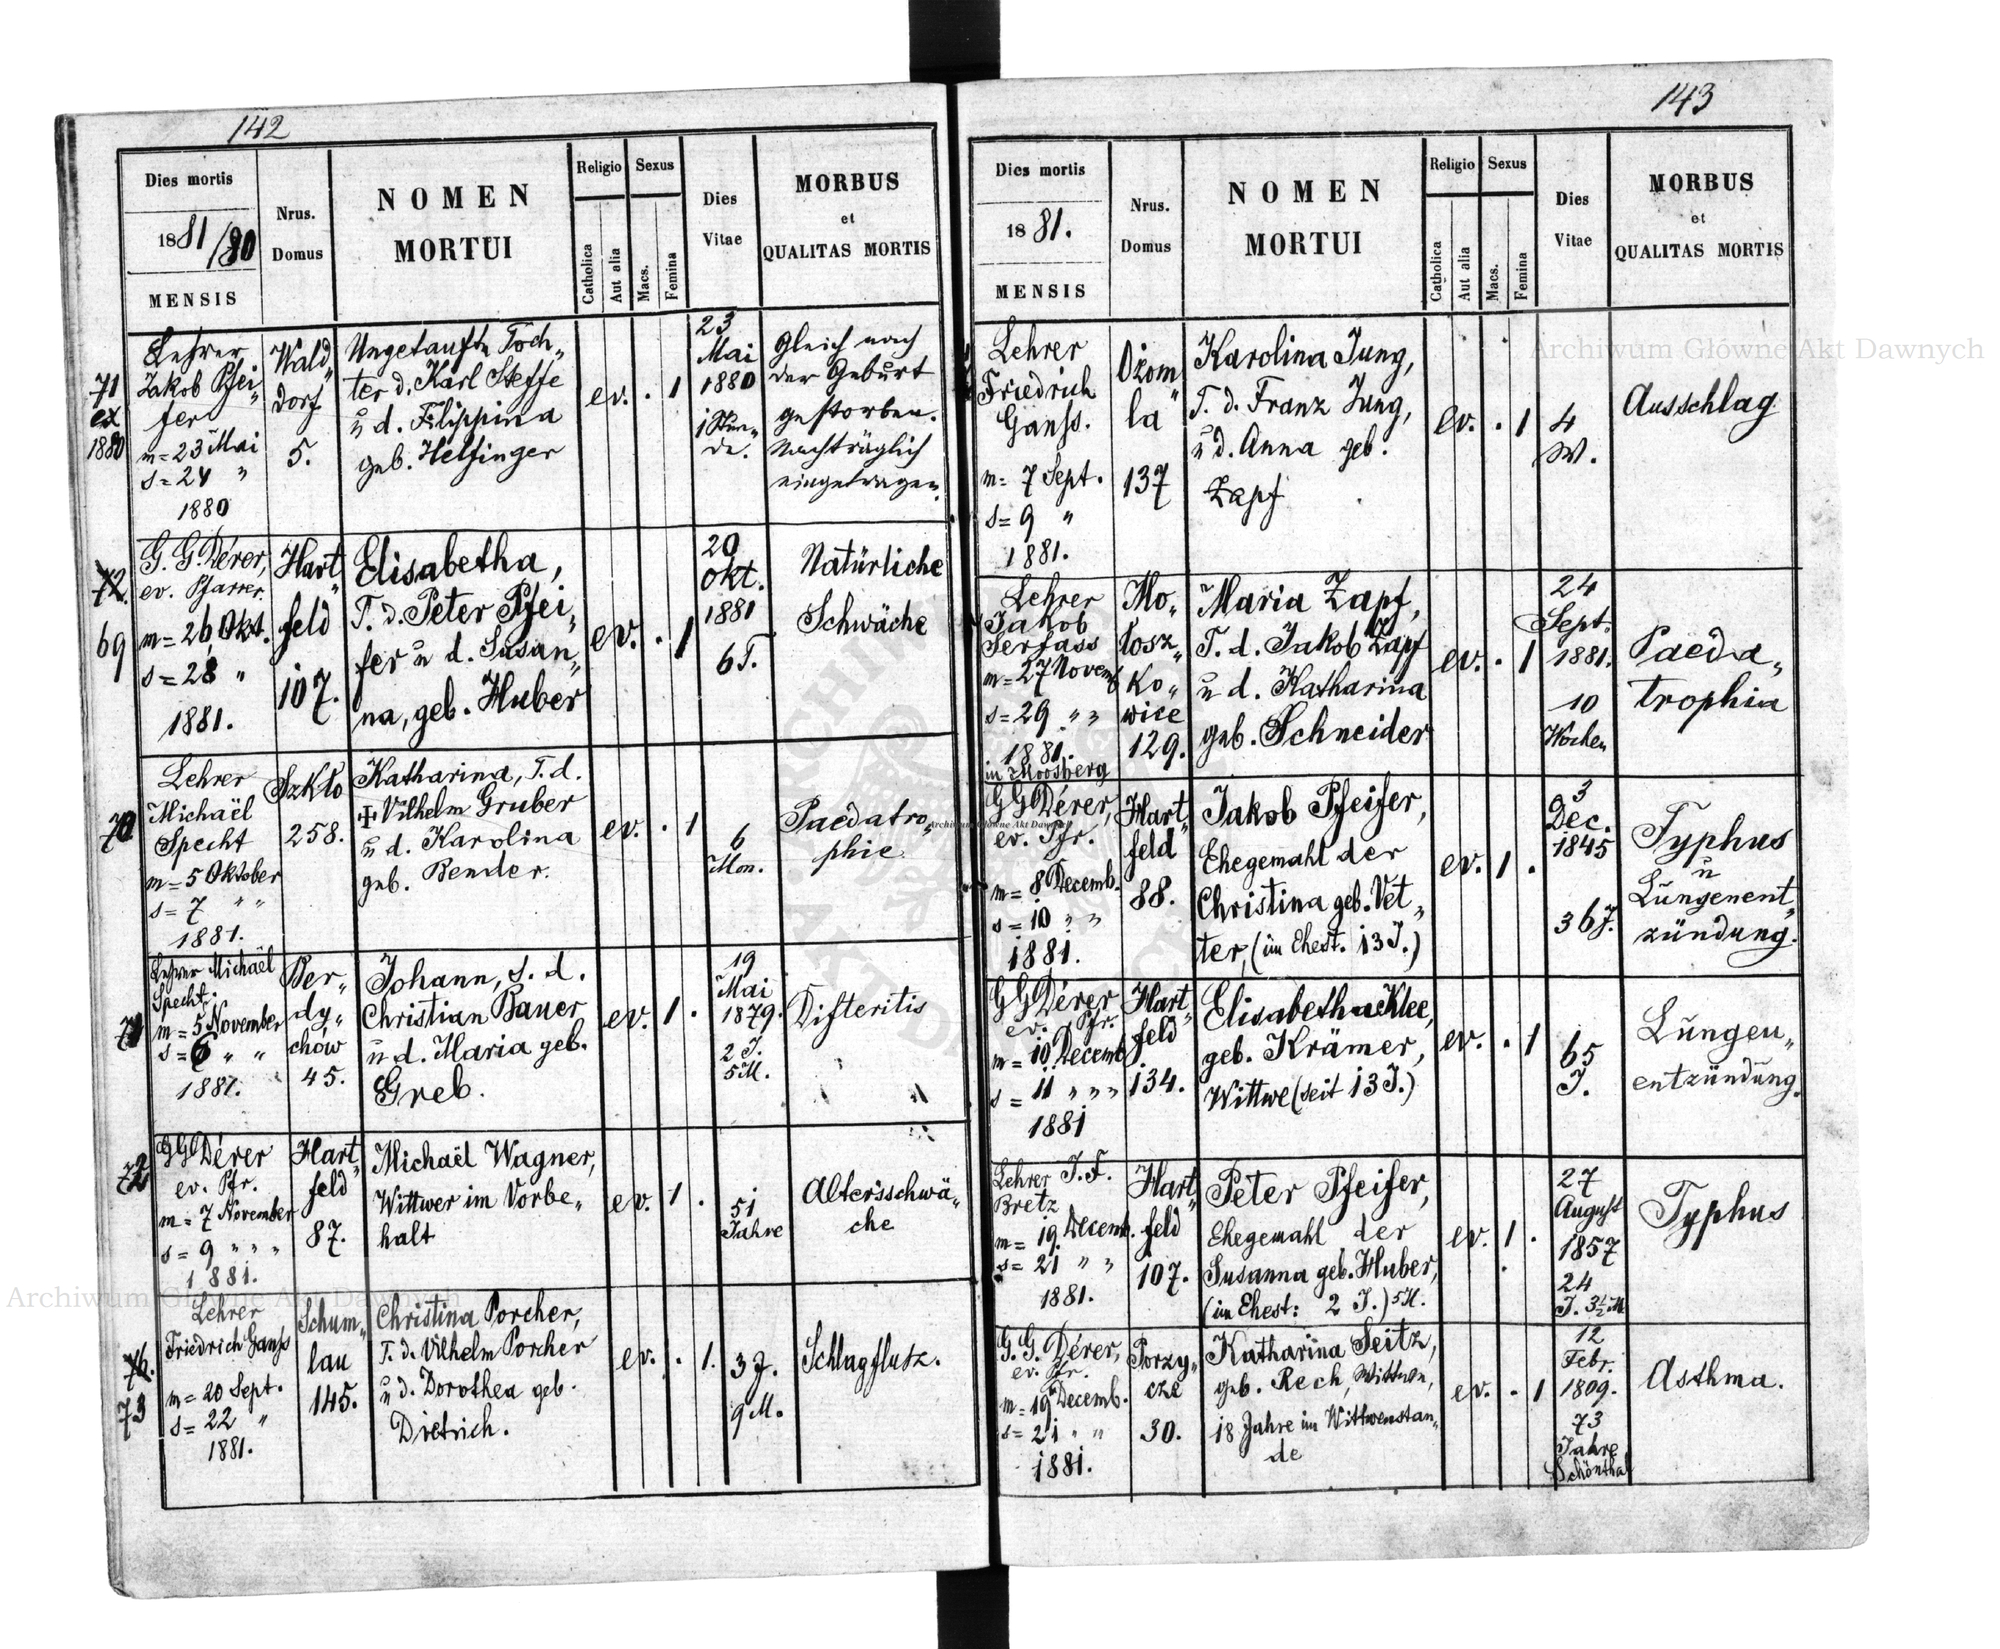 142
Dies mortis
1881/80
MENSIS
Nrus.
Domus
NOMEN
MORTUI
Religio
Catholica
Aut alia
Sexus
Macs.
Femina
Dies
Vitae
MORBUS
et
QUALITAS MORTIS
71
ex
1880
Lehrer
Jakob Pfei-
fer
m = 23 Mai
s = 24 "
1880
Wald"
dorf
5.
Ungetaufte Töch"
ter d. Karl Steffe
u d. Filippina
geb. Helfinger
ev. . 1
23
Mai
1880
1 Stun"
de.
Gleich nach
der Geburt
gestorben.
Nachträglich
eingetragen.
72.
69
G. G. Dérer,
ev. Pfarrer.
m = 26 Okt.
s = 28 "
1881.
Hart"
feld
107.
Elisabetha,
T. d. Peter Pfei"
fer u d. Susan"
na, geb. Huber
ev. . 1
20
Okt.
1881
6 T.
Natürliche
Schwäche
70
Lehrer
Michaël
Specht
m = 5 Oktober
s = 7 " "
1881.
Szkło
258.
Katharina, T. d.
✠ Vilhelm Gruber
u d. Karolina
geb. Bender.
ev. . 1
6
Mon.
Paedatro"
phie
71
Lehrer Michaël
Specht.
m = 5 November
s = 6 " "
1881.
Ber"
dy"
chów
45.
Johann, S. d.
Christian Bauer
u d. Maria geb.
Greb.
ev. 1 .
19
Mai
1879.
2 J.
5 M.
Difteritis
72
G G Dérer
ev. Pfr.
m = 7 November
s = 9 " " "
1881.
Hart"
feld
87.
Michaël Wagner,
Wittwer im Vorbe"
halt
ev. 1 .
51
Jahre
Altersschwä"
che
73
Lehrer
Friedrich Ganss
m = 20 Sept.
s = 22 "
1881.
Schum"
lau
145.
Christina Porcher,
T. d. Vilhelm Porcher
u d. Dorothea geb.
Dietrich.
ev. . 1.
3 J.
9 M.
Schlagflutz.
143
Dies mortis
1881.
MENSIS
Nrus.
Domus
NOMEN
MORTUI
Religio
Catholica
Aut alia
Sexus
Macs.
Femina
Dies
Vitae
MORBUS
et
QUALITAS MORTIS
Lehrer
Friedrich
Ganss.
m = 7 Sept.
s = 9 "
1881.
Ożom"
la
137
Karolina Jung,
T. d. Franz Jung,
u d. Anna geb.
Zapf
ev. . 1
4
W.
Ausschlag
Lehrer
Jakob
Serfass
m = 27 Novemb
s = 29 " "
1881.
in Moosberg
Mo"
łosz"
ko"
wice
129.
Maria Zapf,
T. d. Jakob Zapf
u d. Katharina
geb. Schneider
ev. . 1
24
Sept.
1881.
10
Wochen
Paeda"
trophia
G G Dérer,
ev. Pfr.
m = 8 Decemb.
s = 10 " "
1881.
Hart"
feld
88.
Jakob Pfeifer,
Ehegemahl der
Christina geb. Vet"
ter, (im Ehest. 13 J.)
ev. 1 .
3
Dec.
1845
36 J.
Typhus
u
Lungenent"
zündung.
G G Dérer
ev. Pfr.
m = 10 Decemb
s = 11 " " "
1881
Hart"
feld
134.
Elisabetha Klee,
geb. Krämer,
Wittwe (seit 13 J.)
ev. . 1
65
J.
Lungen"
entzündung.
Lehrer J. F.
Bretz
m = 19. Decemb.
s = 21 " "
1881.
Hart"
feld
107.
Peter Pfeifer,
Ehegemahl der
Susanna geb. Huber,
(im Ehest: 2 J.) 5 M.
ev. 1 .
27
August
1857
24
J. 3½ M
Typhus
G. G. Dérer,
ev. Pfr.
m = 19 Decemb.
s = 21 " "
1881.
Porzy"
cze
30.
Katharina Seitz,
geb. Rech, Wittwe,
18 Jahre im Wittwenstan"
de
ev. . 1
12
Febr.
1809.
73
Jahre
Schönthal
Asthma.
Archiwum Główne Akt Dawnych
Archiwum Główne Akt Dawnych
Archiwum Główne Akt Dawnych